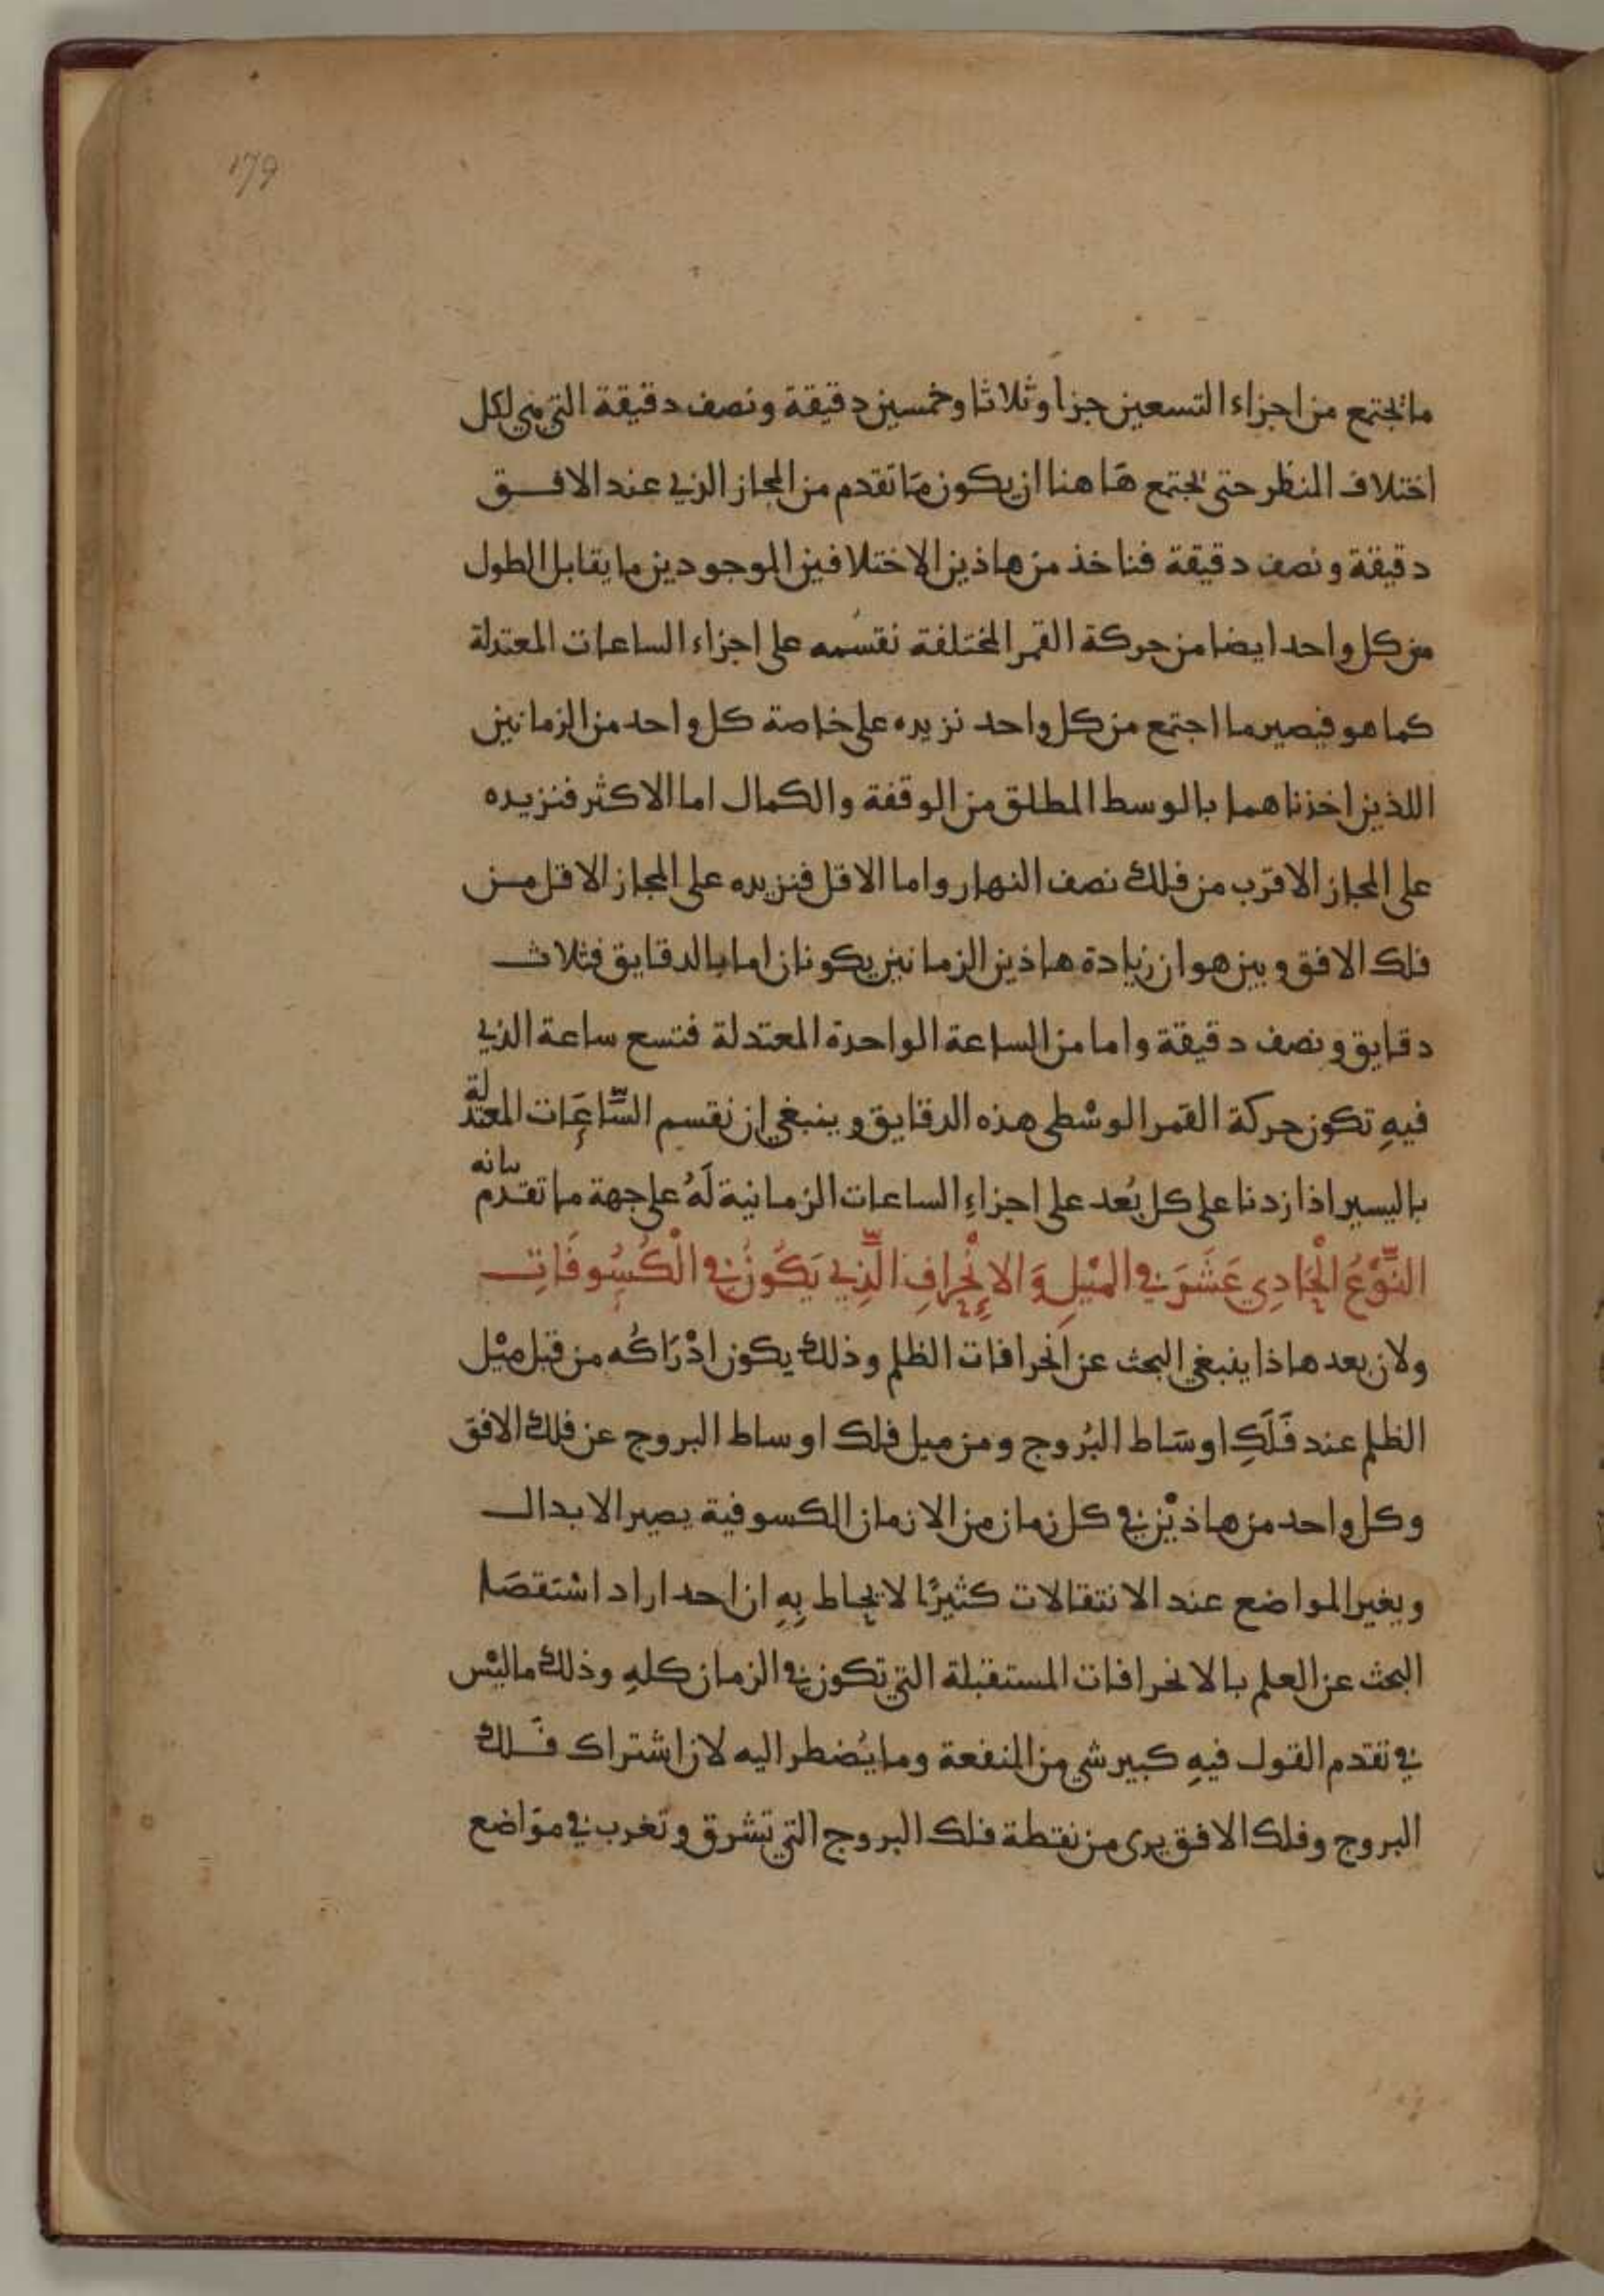 179
ما تجتمع من اجزاء التسعين جزأ وثلاثا وخمسين دقيقة ونصف دقيقة التي هي لكل
اختلاف المنظر حتى تجتمع هَا هنا ان يكون مَا تقدم من المجاز الذي عند الافـــق
دقيقة ونصف دقيقة فناخذ من هاذين الاختلافين الموجودين ما يقابل الطول
من كل واحد ايضا من حركة القمر المختلفة نقسمه على اجزاء الساعات المعتدلة
كما هو فيصير ما اجتمع من كل واحد نزيده على خاصة كل واحد من الزمانين
اللذين اخذناهما بالوسط المطلق من الوقفة والكمال اما الاكثر فنزيده
على المجاز الاقرَب من فلك نصف النهار واما الاقل فنزيده على المجاز الاقل من
فلك الافق وبين هو ان زيادة هاذين الزمانين يكونان اما بالدقايق فثلاث
دقايق ونصف دقيقة واما من الساعة الواحدة المعتدلة فتسع ساعة الذي
فيهِ تكون حركة القمر الوسْطى هذه الدقايق وينبغي ان نقسم السَّاعَات المعتدلة
باليسير اذا زدنا على كل بُعد على اجزاءِ الساعات الزمانية لَهُ على جهة ما تقدم بيانه
النَّوْعُ الْحَادِي عَشَرَ في المَيْلِ وَ الاِنْحِرافِ الَّذِي يَكُونُ في الْكُسُوفَاتِ
ولان بعد هاذا ينبغي البحث عن انحرافات الظلم وذلك يكون ادْرَاكُه من قبل مَيْل
الظلم عند فَلَكِ اوسَاط البُروج ومن ميل فلك اوساط البروج عن فلك الافق
وكل واحد من هاذَيْن في كل زمان من الازمان الكسوفية يصير الابدال
ويغير المواضع عند الانتقالات كثيرًا لا يحاط بِهِ ان احد اراد اسْتقصَا
البحث عن العلم بالانحرافات المستقبلة التي تكون في الزمان كلهِ وذلك ما ليْس
في تقدم القول فيهِ كبير شي من المنفعة وما يُضطر اليه لان اشتراك فَــلك
البروج وفلك الافق يرى من نقطة فلك البروج التي تشرق وتغرب في موَاضع